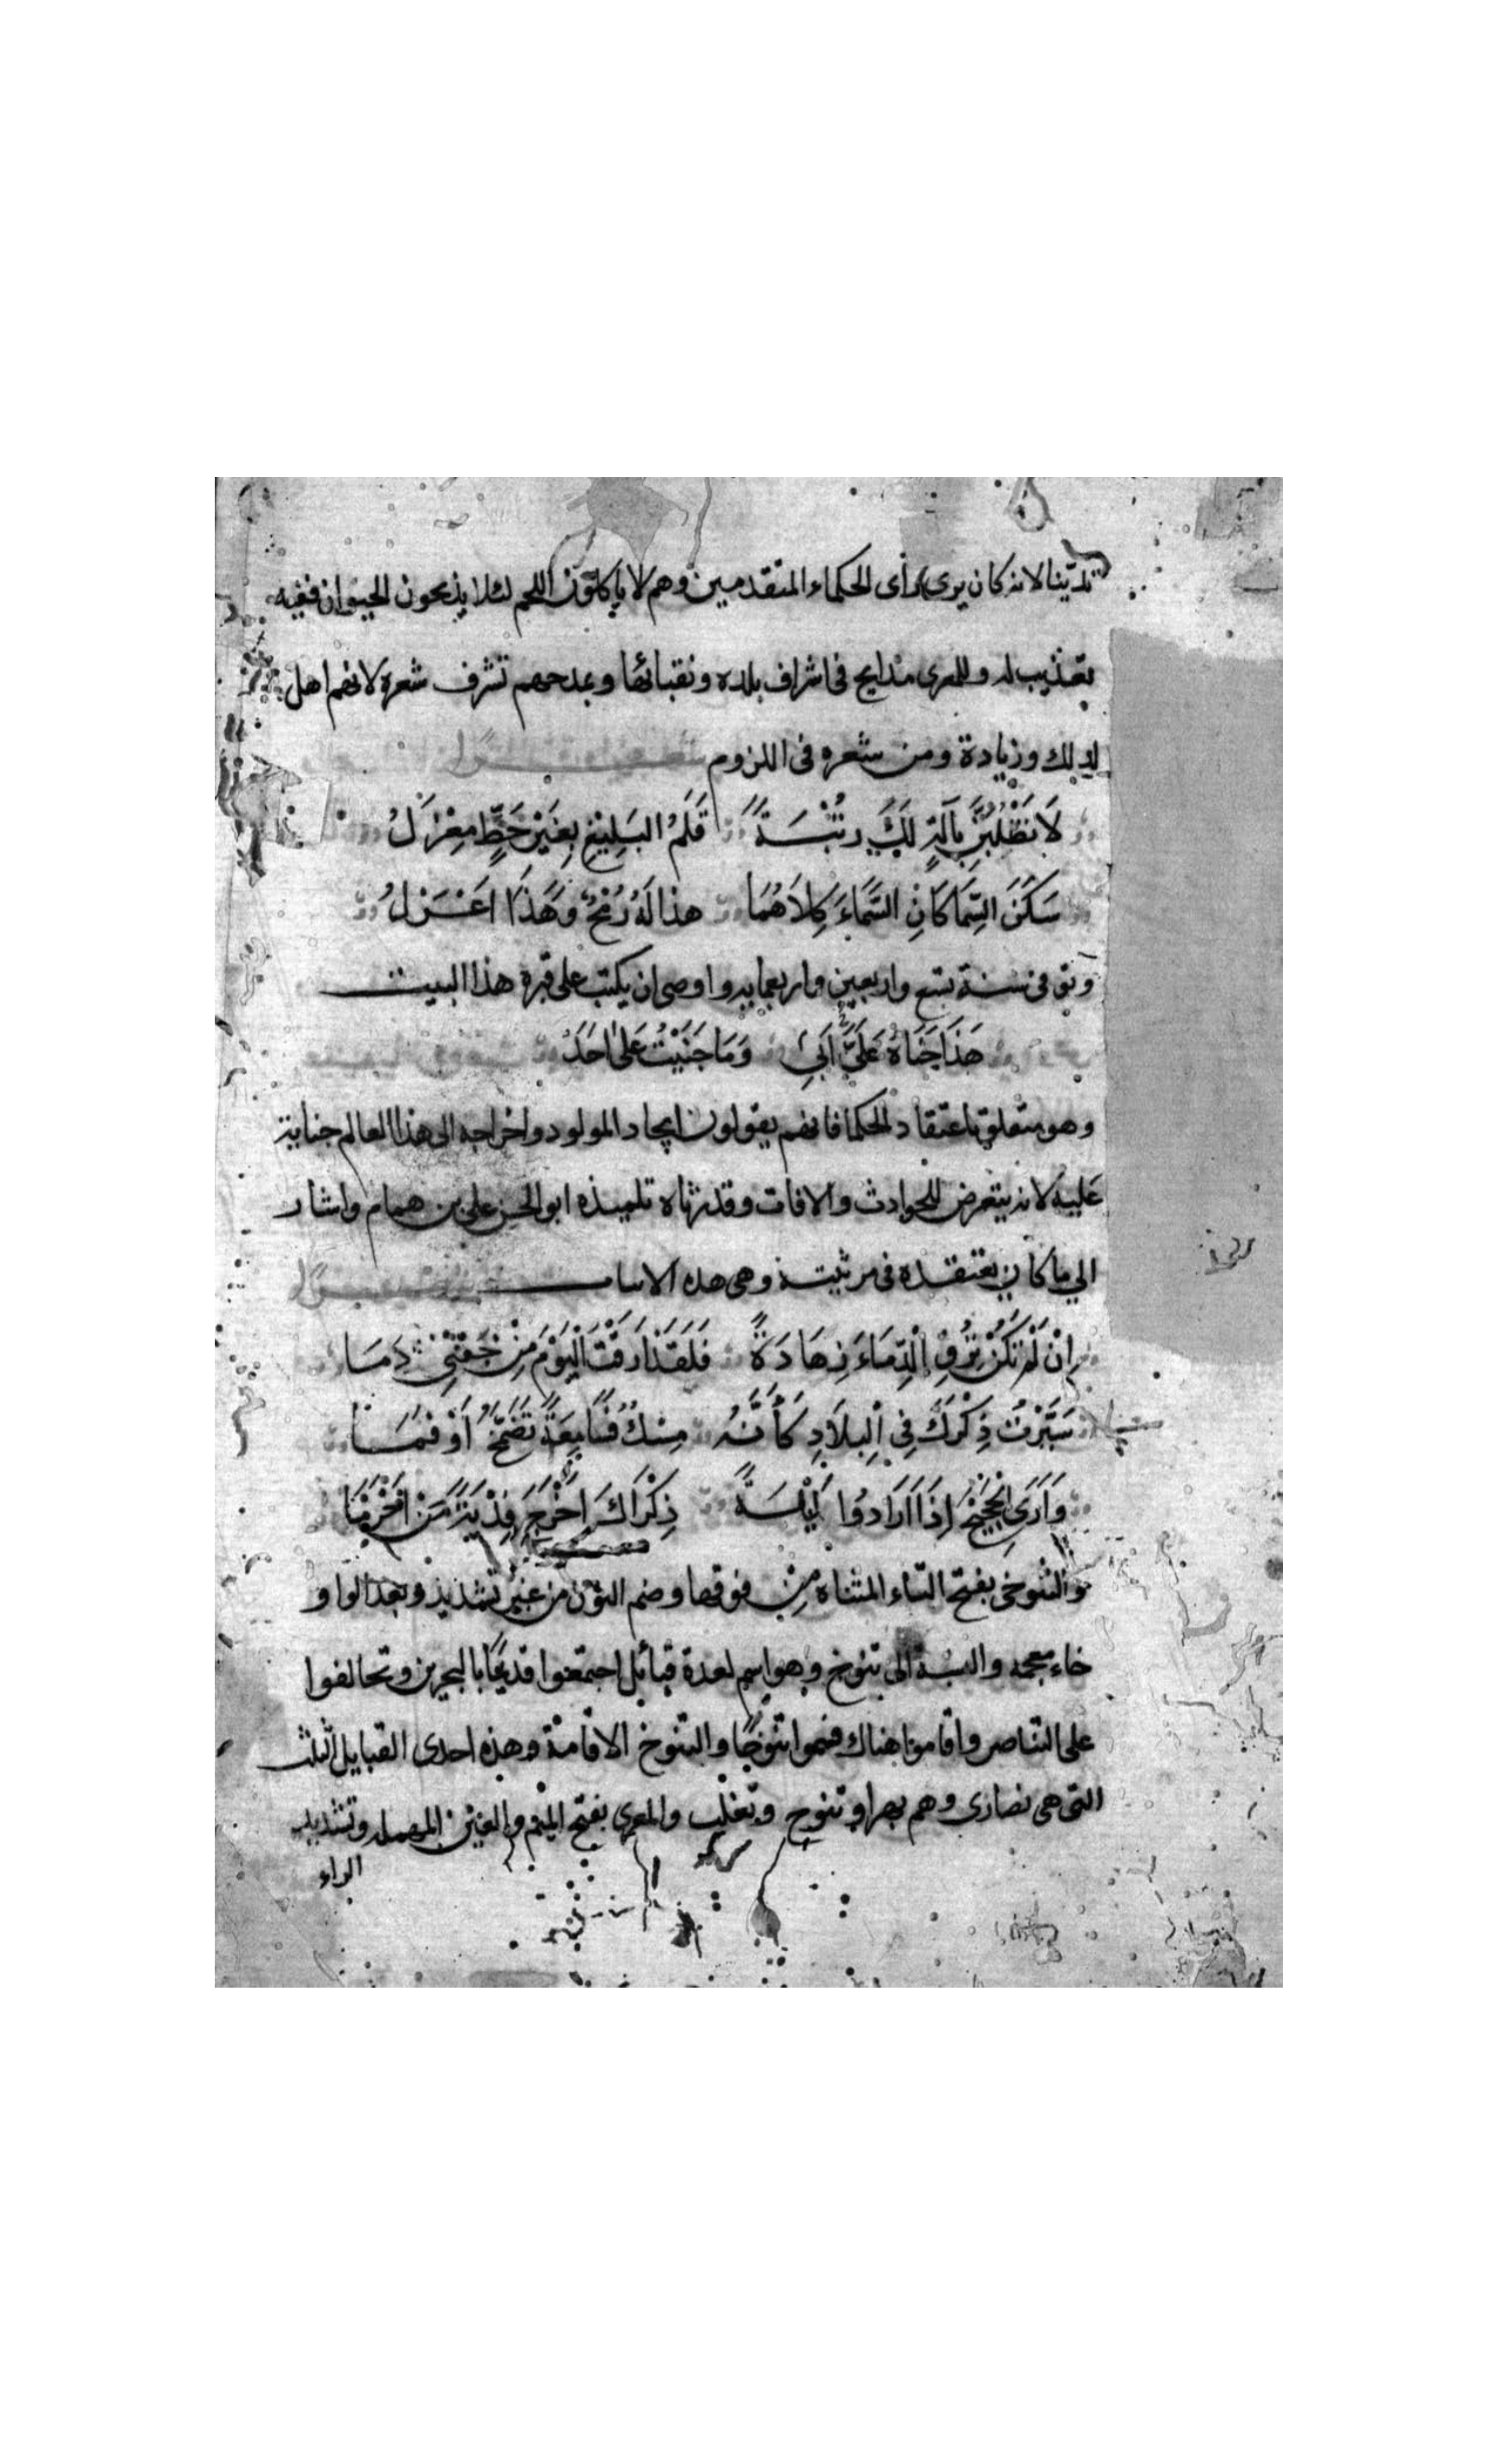 تدينا لانه كان يرى رأى الحكماء المتقدمين وهم لا يأكلون اللحم لئلا يذبحون الحيوان ففيه
تعذيب له وللمعرى مدايح فى اشراف بلده ونقبائها وبمدحهم تشرف شعره لانهم اهل
لذلك وزيادة ومن شعره فى اللزوم
لَا تَطْلُبَنَّ بِآلَةٍ لَكَ رُتْبَةً قَلَمُ البَلِيْغِ بِغَيْرِ حَظٍّ مِغْزَلُ
سَكَنَ السِّمَاكَانِ السَّمَاءَ كِلَاهُمَا هذا لَهُ رُمْحٌ وَهَذَا اَعْزَلُ
وتوفى سنة تسع واربعين واربعمايه واوصى ان يكتب على قبره هذا البيت
هَذَا جَنَاهُ عَلَيَّ اَبِي وَمَا جَنَيْتُ عَلَى اَحَدُ
وهو متعلق باعتقاد الحكما فانهم يقولون ايجاد المولود واخراجه الى هذا العالم جناية
عليه لانه يتعرض للحوادث والافات وقد رثاه تلميذه ابو الحسن على بن همام واشار
الي ما كان يعتقده فى مرثيته وهى هده الابيات
اِنْ لَمْ تَكُنْ تُرِقِ الْدِّمَاءَ زِهَادَةً فَلَقَدْ اَرَقْتَ الْيَوْمَ مِنْ جَفْنِي دِمَا
سَيَّرْتَ ذِكْرَكَ فِي الْبِلَادِ كَأَنَّهُ مِسْكٌ فَسَامِعَةً تَضَمَّخُ أَوْ فَمَا
وَاَرَى الْحَجِيْجَ اِذَا اَرَادُوا لَيْلَةً ذِكْرَاكَ اَخْرَجَ فِدْيَةً مَنْ اَحْرَمَا
والتنوخى بفتح التاء المثناه مِنْ فوقها وضم النون من غير تشديد وبعد الواو
خاء معجمه والنسبة الى تنوخ وهو اسم لعدة قبائل اجتمعوا قديمًا بالبحرين وتحالفوا
على التناصر واقاموا هناك فسموا تنوخًا والتنوخ الاقامة وهذه احدى القبايل الثلث
التى هى نصارى وهم بهرا وتنوح وتغلب والمعرى بفتح الميم والعين المهمله وتشديد
الراء